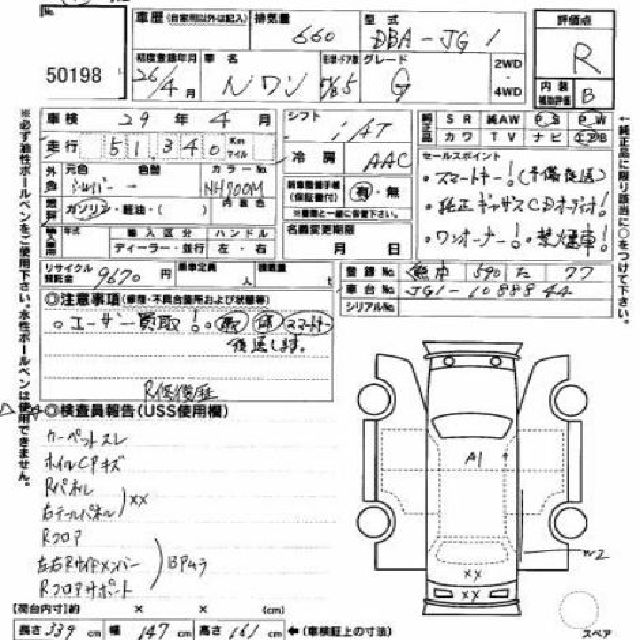 No.
50198
車歴 (自家用以外は記入)
排気量 660
型式 DBA-JG1
評価点 R
内装補助評価 B
初度登録年月 26年4月
車名 Nワン
形状・ドア数 5
グレード G
2WD
4WD
車検 29年4月
走行 51,340 Km マイル
シフト iAT
冷房 AAC
純正品 SR 純AW PS PW
カワ TV ナビ エアB
外色 元色 シルバー 色替
カラーNo. NH700M
内装色
燃料 ガソリン・軽油・( )
新車整備手帳(保証書付) 有・無
※機関と一緒に告発下さい
輸入車用 年式 輸入区分 ハンドル
ディーラー・並行 左・右
名義変更期限
月 日
セールスポイント
・スマートキー!(予備後送)
・純正ギャザズCDオーディオ!
・ワンオーナー!・禁煙車!
リサイクル預託金 9670円
乗車定員 人
積載量 t
登録No. 熊本 590 た 77
車台No. JG1-1088844
シリアルNo.
◎注意事項(修復・不具合箇所および状態等)
○ユーザー買取!○取 保 スマートキー
後送します。
R修復歴
◎検査員報告(USS使用欄)
カーペットスレ
ホイルCPキズ
Rパネル
右テールパネル XX
Rフロア
左右Rサイドメンバー BPムラ
Rフロアサポート
A1
W2
XX
【荷台内寸】約 × × (cm)
長さ 339 cm 幅 147 cm 高さ 161 cm ←(車検証上の寸法)
スペア
※必ず油性ボールペンをご使用下さい。水性ボールペンは使用できません。
←純正品に限り該当に○をつけて下さい。